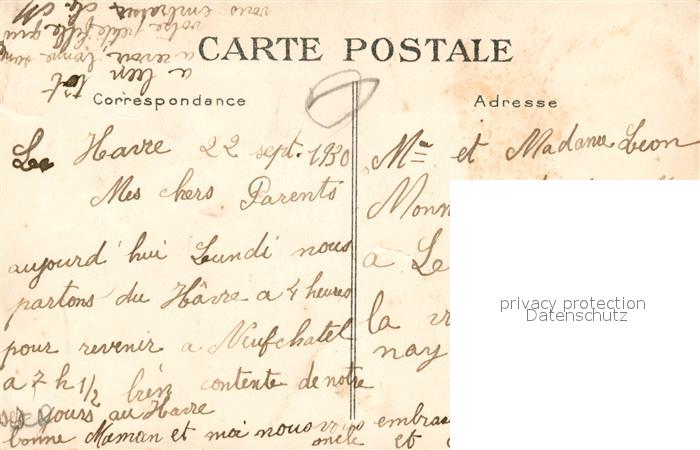 a bien
tôt
votre petite fille qui
vous embrasse
CARTE POSTALE
Correspondance
Adresse
Le Havre 22 sept. 1930
Mes chers Parents
aujourd'hui Lundi nous
partons du Hâvre a 4 heures
pour revenir a Neufchatel
a 7 h 1/2 bien contente de notre
sejours au Havre
bonne Maman et moi nous vous embras
oncle et
Mr et Madame Leon
Monn
a Le
la
nay
privacy protection
Datenschutz